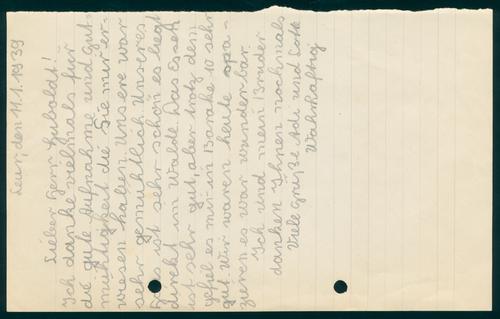 Leur, den 11.1.1939
Lieber Herr Luboldt!
Ich danke vielmals für
die gute Aufnahme und Gut-
mühtigkeit die Sie mir er-
wiesen haben. Unsere war
sehr gemühtlich Unseres
ist sehr schön es liegt
direkt im Walde Das Essen
ist sehr gut, aber trotz dem
gefiel es mir in Barake 10 sehr
gut. Wir waren heute spa-
zieren es war wunderbar
Ich und mein Bruder
danken Ihnen nochmals
Viele Grüße Adi und Lotte
Wahrhaftig